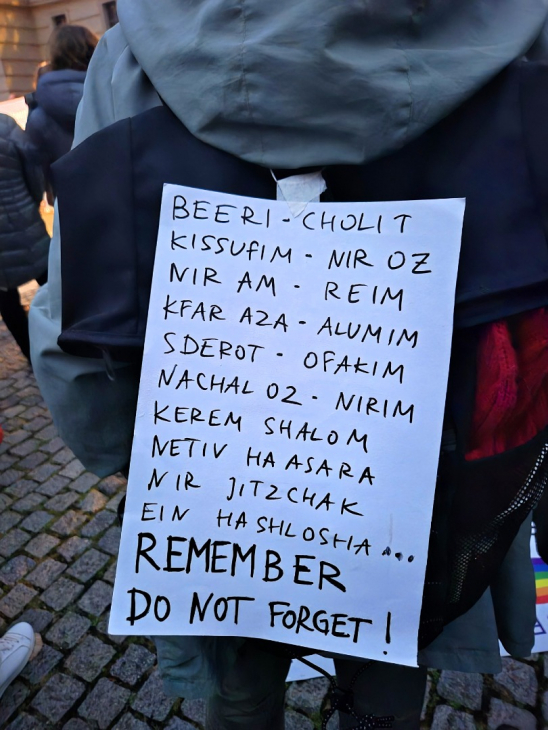 BEERI - CHOLIT
KISSUFIM - NIR OZ
NIR AM - REIM
KFAR AZA - ALUMIM
SDEROT - OFAKIM
NACHAL OZ - NIRIM
KEREM SHALOM
NETIV HAASARA
NIR JITZCHAK
EIN HASHLOSHA...
REMEMBER
DO NOT FORGET!